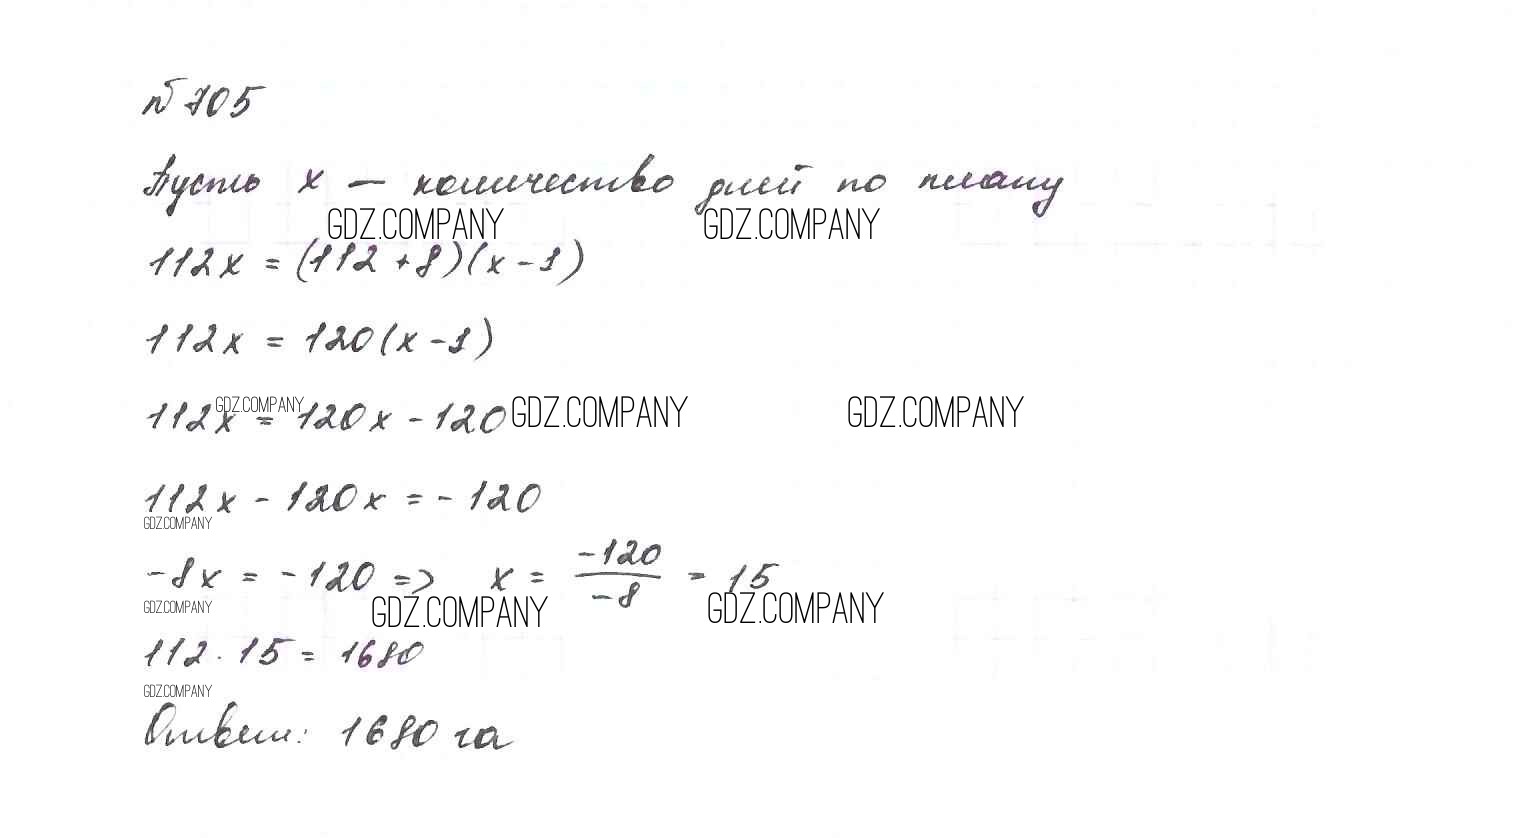 №705
Пусть x — количество дней по плану
GDZ.COMPANY GDZ.COMPANY
112x = (112+8)(x-1)
112x = 120(x-1)
GDZ.COMPANY GDZ.COMPANY GDZ.COMPANY
112x = 120x - 120
112x - 120x = -120
GDZ.COMPANY
-8x = -120 => x = -120/-8 = 15
GDZ.COMPANY GDZ.COMPANY GDZ.COMPANY
112 · 15 = 1680
GDZ.COMPANY
Ответ: 1680 га